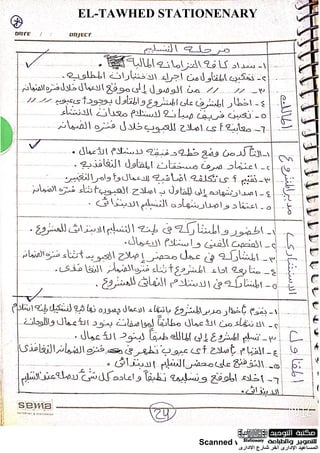 EL-TAWHED STATIONENARY
DATE / OBJECT
مرحلة التسليم
المالك
١- سداد كافة الغرامات المالية
٢- تمكين المقاول من اجراء الاختبارات المطلوبة.
٣- // // من الوصول إلى موقع العمل خلال فترة الضمان
٤- اخطار المشرف على المشروع والمقاول بوجود أى عيوب //
٥- تعيين فريق صيانة لاستلام معدات الانشاء
٦- معاينة أى اصلاح للعيوب خلال فترة الضمان
مدير المشروع
١- التأكد من وضع خطة دقيقة لاستلام الأعمال.
٢- اعتماد صرف مستحقات المقاول التعاقدية.
٣- تقييم أى تكلفة اضافية للأعمال وأوامر التغيير
٤- اصدار شهادة إلى المقاول ب اصلاح العيوب اثناء فترة الضمان
٥- اعتماد و اصدار شهادة التسليم الابتدائى.
الاستشارى
١- الحضور والمشاركة فى لجنة التسليم الابتدائى للمشروع.
٢- الفحص الفنى واستلام الأعمال.
٣- المشاركة فى عمل محضر إصلاح العيوب أثناء فترة الضمان
٤- متابعة اداء المشروع أثناء فترة الضمان التعاقدى.
٥- المشاركة فى الاستلام النهائى للمشروع.
المقاول
١- يقوم بإخطار مدير المشروع بانتهاء الأعمال بصورة نهائية لتشكيل لجنة استلام
٢- الانتهاء من الأعمال مطابقاً لمواصفات بنود الأعمال واللوحات
٣- تسليم المشروع إلى المالك طبقاً لبنود الأعمال.
٤- القيام بإصلاح أى عيوب تظهر فى فترة الضمان التعاقدى
٥- التوقيع على محضر التسليم الابتدائى.
٦- اخلاء الموقع وتسليمه نظيفاً واعادة كل شئ لأصله عند التسليم
الابتدائى.
sema
٢٤
Scanned
مكتبة التوحيد
للتصوير والطباعة